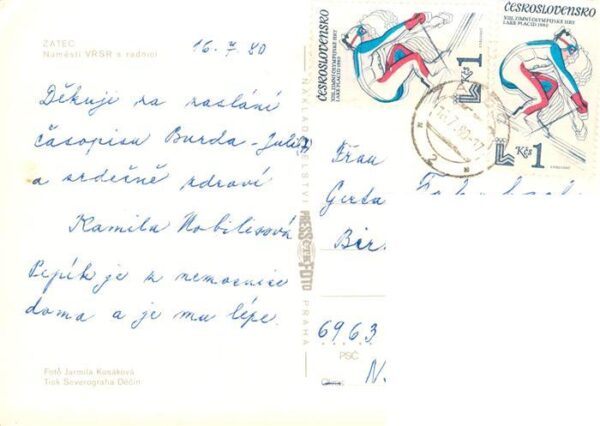 ŽATEC
Náměstí VRSR s radnicí
16. 7 80
Děkuji za zaslání
časopisu Burda - Julie
a srdečně zdraví
Kamila Nobilisová
Pepík je z nemocnice
doma a je mu lépe.
Foto Jarmila Kusáková
Tisk Severografia Děčín
NAKLADATELSTVÍ
PRESSFOTO
PRAHA
ČESKOSLOVENSKO
XIII. ZIMNÍ OLYMPIJSKÉ HRY
LAKE PLACID 1980
Kčs 1
ČESKOSLOVENSKO
XIII. ZIMNÍ OLYMPIJSKÉ HRY
LAKE PLACID 1980
Kčs 1
2
Frau
Gerta
Bir
6963
PSČ
N.